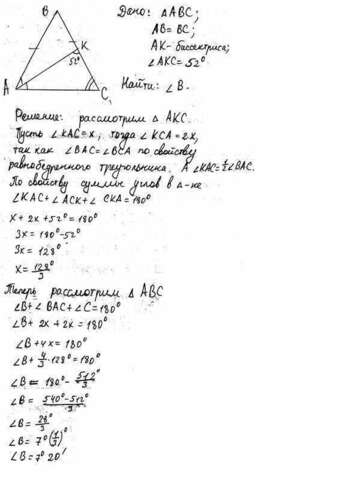 B
K
52°
A
C
Дано: △ABC;
AB = BC;
AK - биссектриса;
∠AKC = 52°
Найти: ∠B.
Решение: рассмотрим △ AKC.
Пусть ∠KAC = x, тогда ∠KCA = 2x,
так как ∠BAC = ∠BCA по свойству
равнобедренного треугольника. А ∠KAC = ½∠BAC.
По свойству суммы углов в △-ке
∠KAC + ∠ACK + ∠CKA = 180°
x + 2x + 52° = 180°
3x = 180° - 52°
3x = 128°
x = 128°/3
Теперь рассмотрим △ ABC
∠B + ∠BAC + ∠C = 180°
∠B + 2x + 2x = 180°
∠B + 4x = 180°
∠B + 4/3 · 128° = 180°
∠B = 180° - 512°/3
∠B = 540° - 512°/3
∠B = 28°/3
∠B = 7°(1/3)°
∠B = 7° 20′